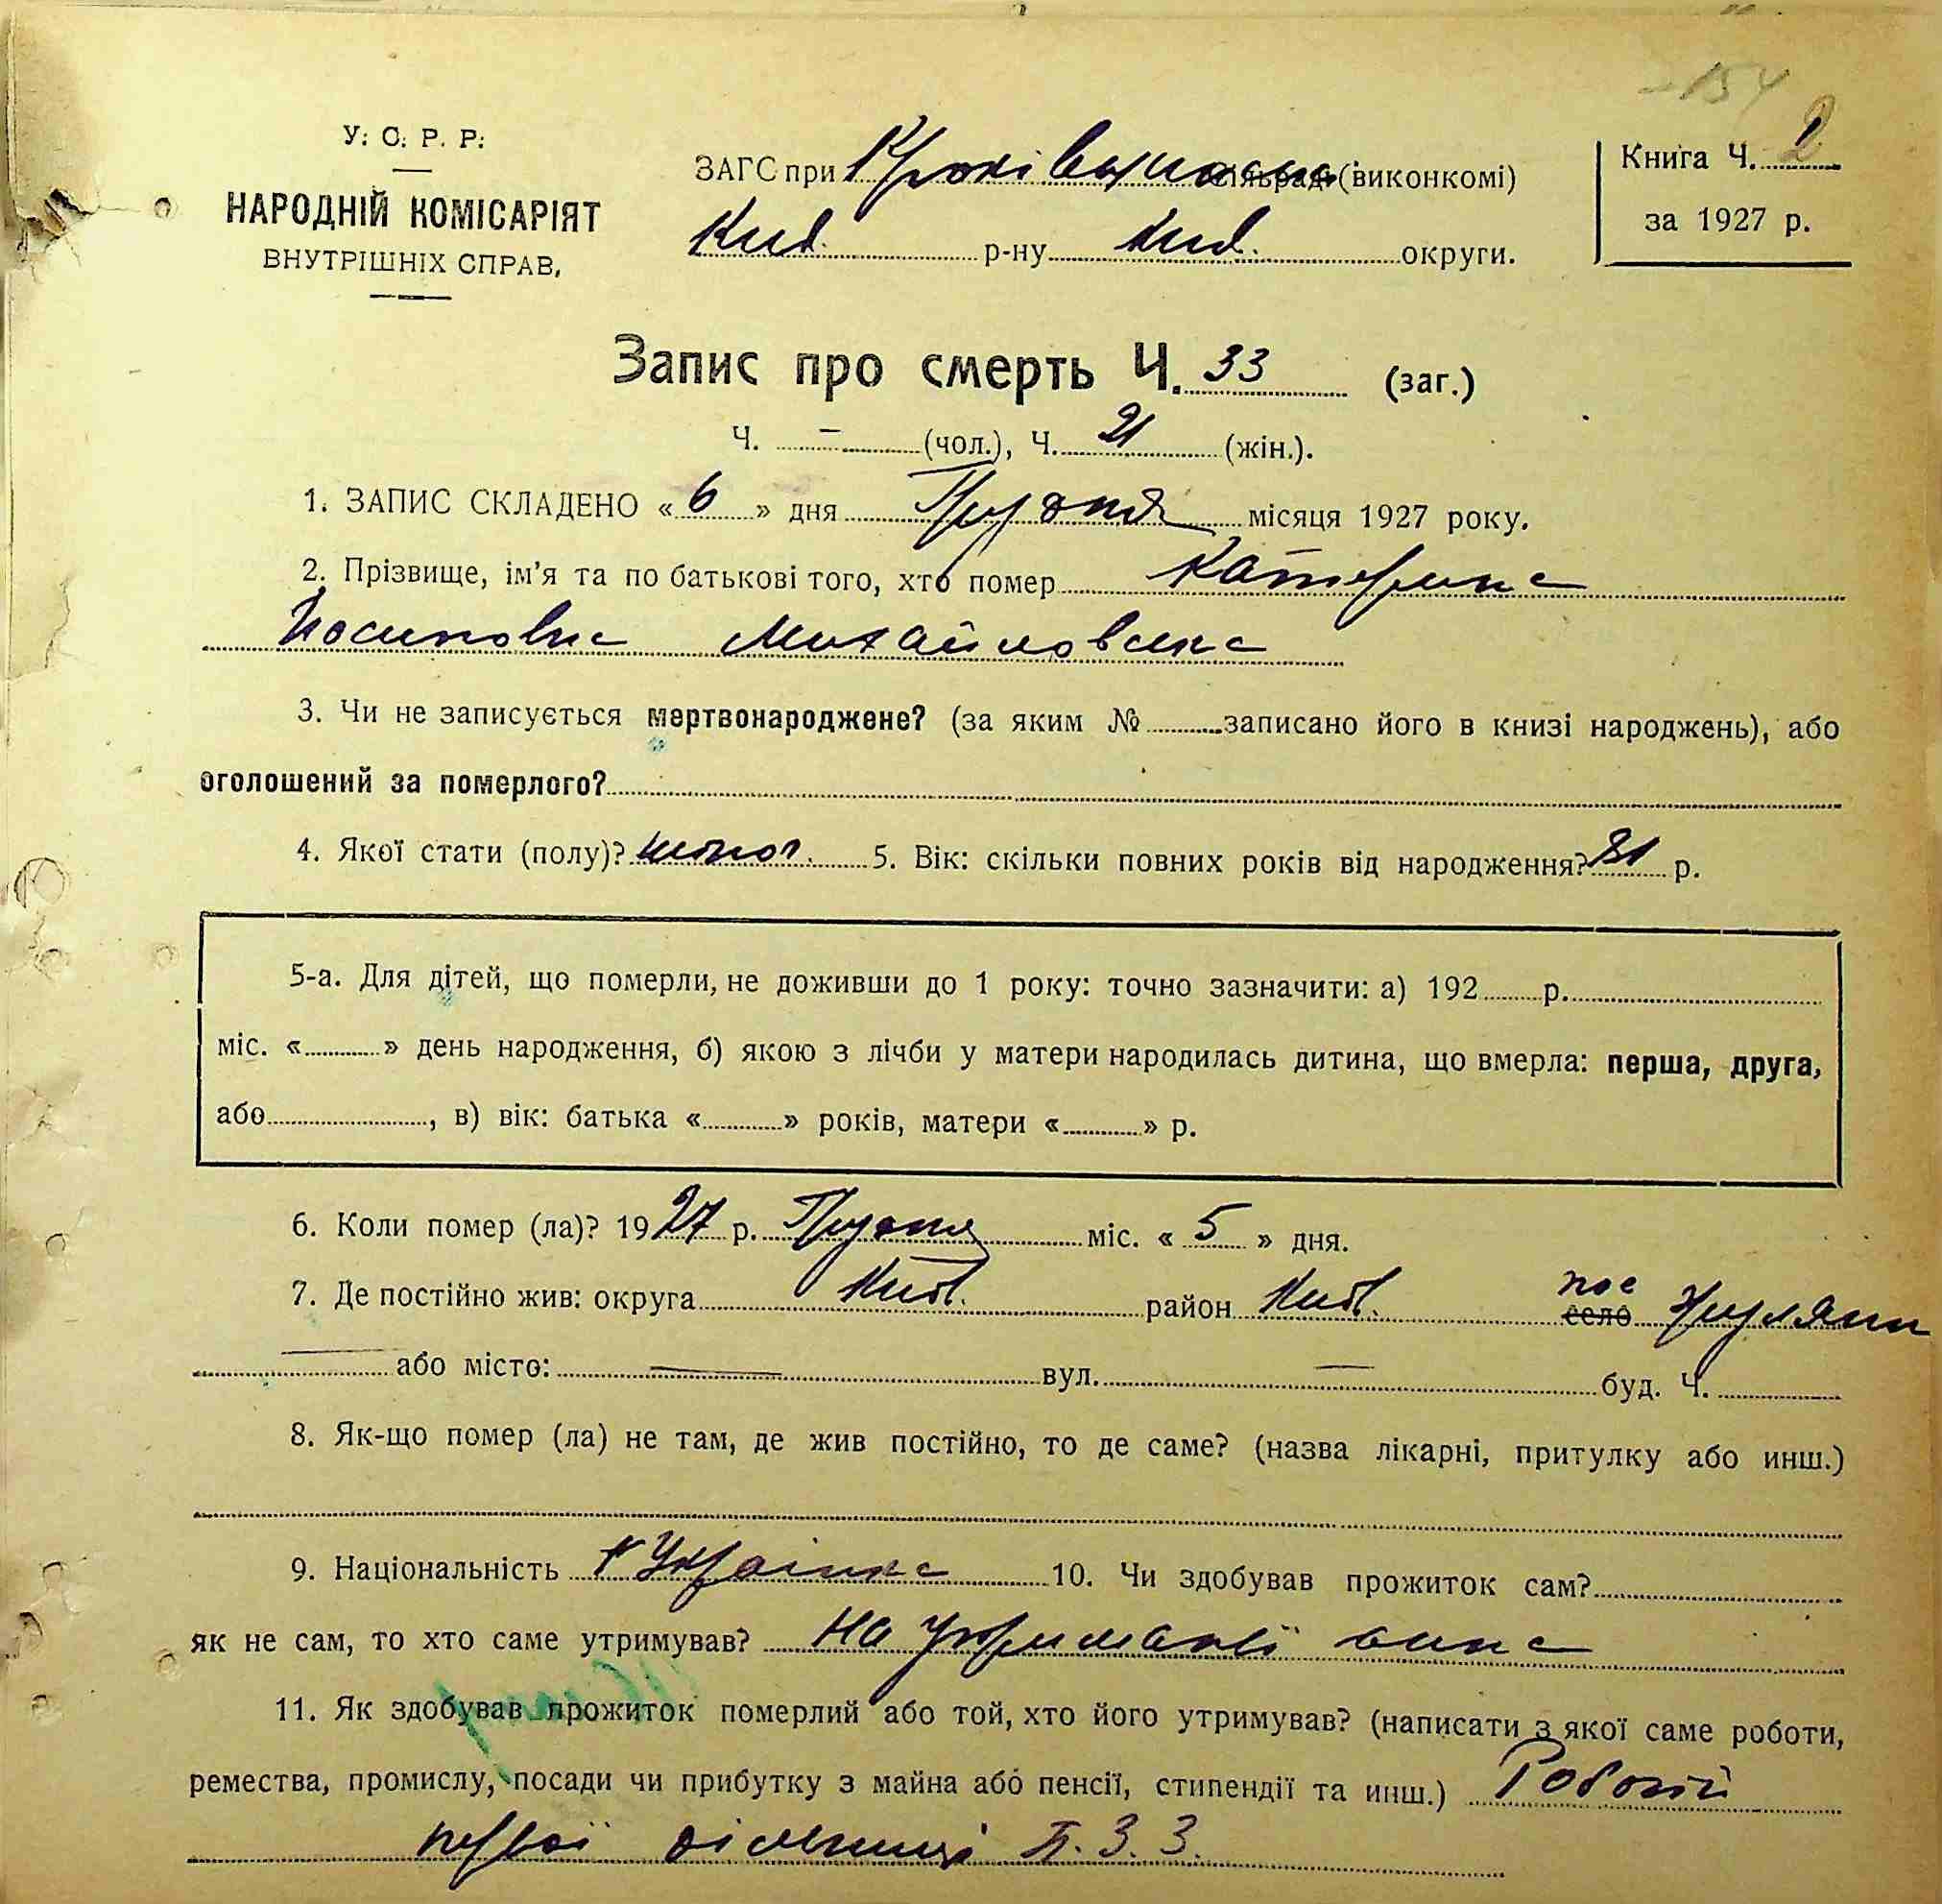 154
У. С. Р. Р.
НАРОДНІЙ КОМІСАРІЯТ
ВНУТРІШНІХ СПРАВ,
ЗАГС при сільраді (виконкомі)
Київ. р-ну Київ. округи.
Книга Ч. 2
за 1927 р.
Запис про смерть Ч. 33 (заг.)
Ч. – (чол.), Ч. 21 (жін.).
1. ЗАПИС СКЛАДЕНО « 6 » дня Грудня місяця 1927 року.
2. Прізвище, ім’я та по батькові того, хто помер Катерина
Йосиповна Михайловська
3. Чи не записується мертвонароджене? (за яким № записано його в книзі народжень), або
оголошений за померлого?
4. Якої стати (полу)? жіноч. 5. Вік: скільки повних років від народження? 81 р.
5-а. Для дітей, що померли, не доживши до 1 року: точно зазначити: а) 192 р.
міс. « » день народження, б) якою з лічби у матери народилась дитина, що вмерла: перша, друга,
або , в) вік: батька « » років, матери « » р.
6. Коли помер (ла)? 1927 р. Грудня міс. « 5 » дня.
7. Де постійно жив: округа Київ. район Київ. пос село Жуляни
або місто: — вул. — буд. Ч.
8. Як-що помер (ла) не там, де жив постійно, то де саме? (назва лікарні, притулку або инш.)
9. Національність Українка 10. Чи здобував прожиток сам?
як не сам, то хто саме утримував? на утриманні сина
11. Як здобував прожиток померлий або той, хто його утримував? (написати з якої саме роботи,
ремества, промислу, посади чи прибутку з майна або пенсії, стипендії та инш.) Робочий
першої дільниці П. З. З.